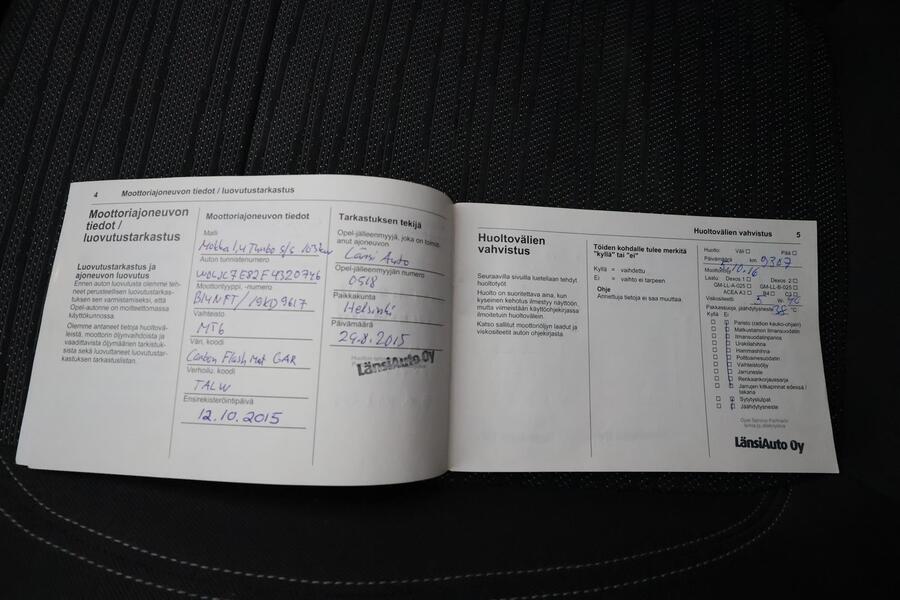 4 Moottoriajoneuvon tiedot / luovutustarkastus
Moottoriajoneuvon
tiedot /
luovutustarkastus
Luovutustarkastus ja
ajoneuvon luovutus
Ennen auton luovutusta olemme teh-
neet perusteellisen luovutustarkas-
tuksen sen varmistamiseksi, että
Opel-autonne on moitteettomassa
käyttökunnossa.
Olemme antaneet tietoja huoltovä-
leistä, moottorin öljynvaihdoista ja
vaadittavista öljymäärien tarkistuk-
sista sekä luovuttaneet luovutustar-
kastuksen tarkastuslistan.
Moottoriajoneuvon tiedot
Malli
Mokka 1,4 Turbo S/S 103kW
Auton tunnistenumero
W0LJC7E82F4320746
Moottorityyppi, -numero
B14NFT / 19KD9617
Vaihteisto
MT6
Väri, koodi
Carbon Flash Met GAR
Verhoilu, koodi
TALW
Ensirekisteröintipäivä
12.10.2015
Tarkastuksen tekijä
Opel-jälleenmyyjä, joka on toimitt-
anut ajoneuvon
Länsi Auto
Opel-jälleenmyyjän numero
0518
Paikkakunta
Helsinki
Päivämäärä
29.8.2015
LänsiAuto Oy
Huoltovälien vahvistus 5
Huoltovälien
vahvistus
Seuraavilla sivuilla luetellaan tehdyt
huoltotyöt
Huolto on suoritettava aina, kun
kyseinen kehotus ilmestyy näyttöön,
mutta viimeistään käyttöohjekirjassa
ilmoitetuin huoltovälein.
Katso sallitut moottoriöljyn laadut ja
viskositeetit auton ohjekirjasta.
Töiden kohdalle tulee merkitä
"kyllä" tai "ei"
Kyllä = vaihdettu
Ei = vaihto ei tarpeen
Ohje
Annettuja tietoja ei saa muuttaa.
Huolto: Väli Pää
Päivämäärä km 9307
10.16
Laatu: Dexos 1 Dexos 2
GM-LL-A-025 GM-LL-B-025
ACEA A3 B4 C3
Viskositeetti 5 W- 40
Pakkassuoja, jäähdytysneste 38 °C
Kyllä Ei
Paristo (radion kauko-ohjain)
Matkustamon ilmansuodatin
Ilmansuodatinpanos
Urakiilahihna
Hammashihna
Polttoainesuodatin
Vaihteistoöljy
Jarruneste
Renkaankorjaussarja
Jarrujen kitkapinnat edessä /
takana
Sytytystulpat
Jäähdytysneste
Opel Service Partnerin
leima ja allekirjoitus
LänsiAuto Oy